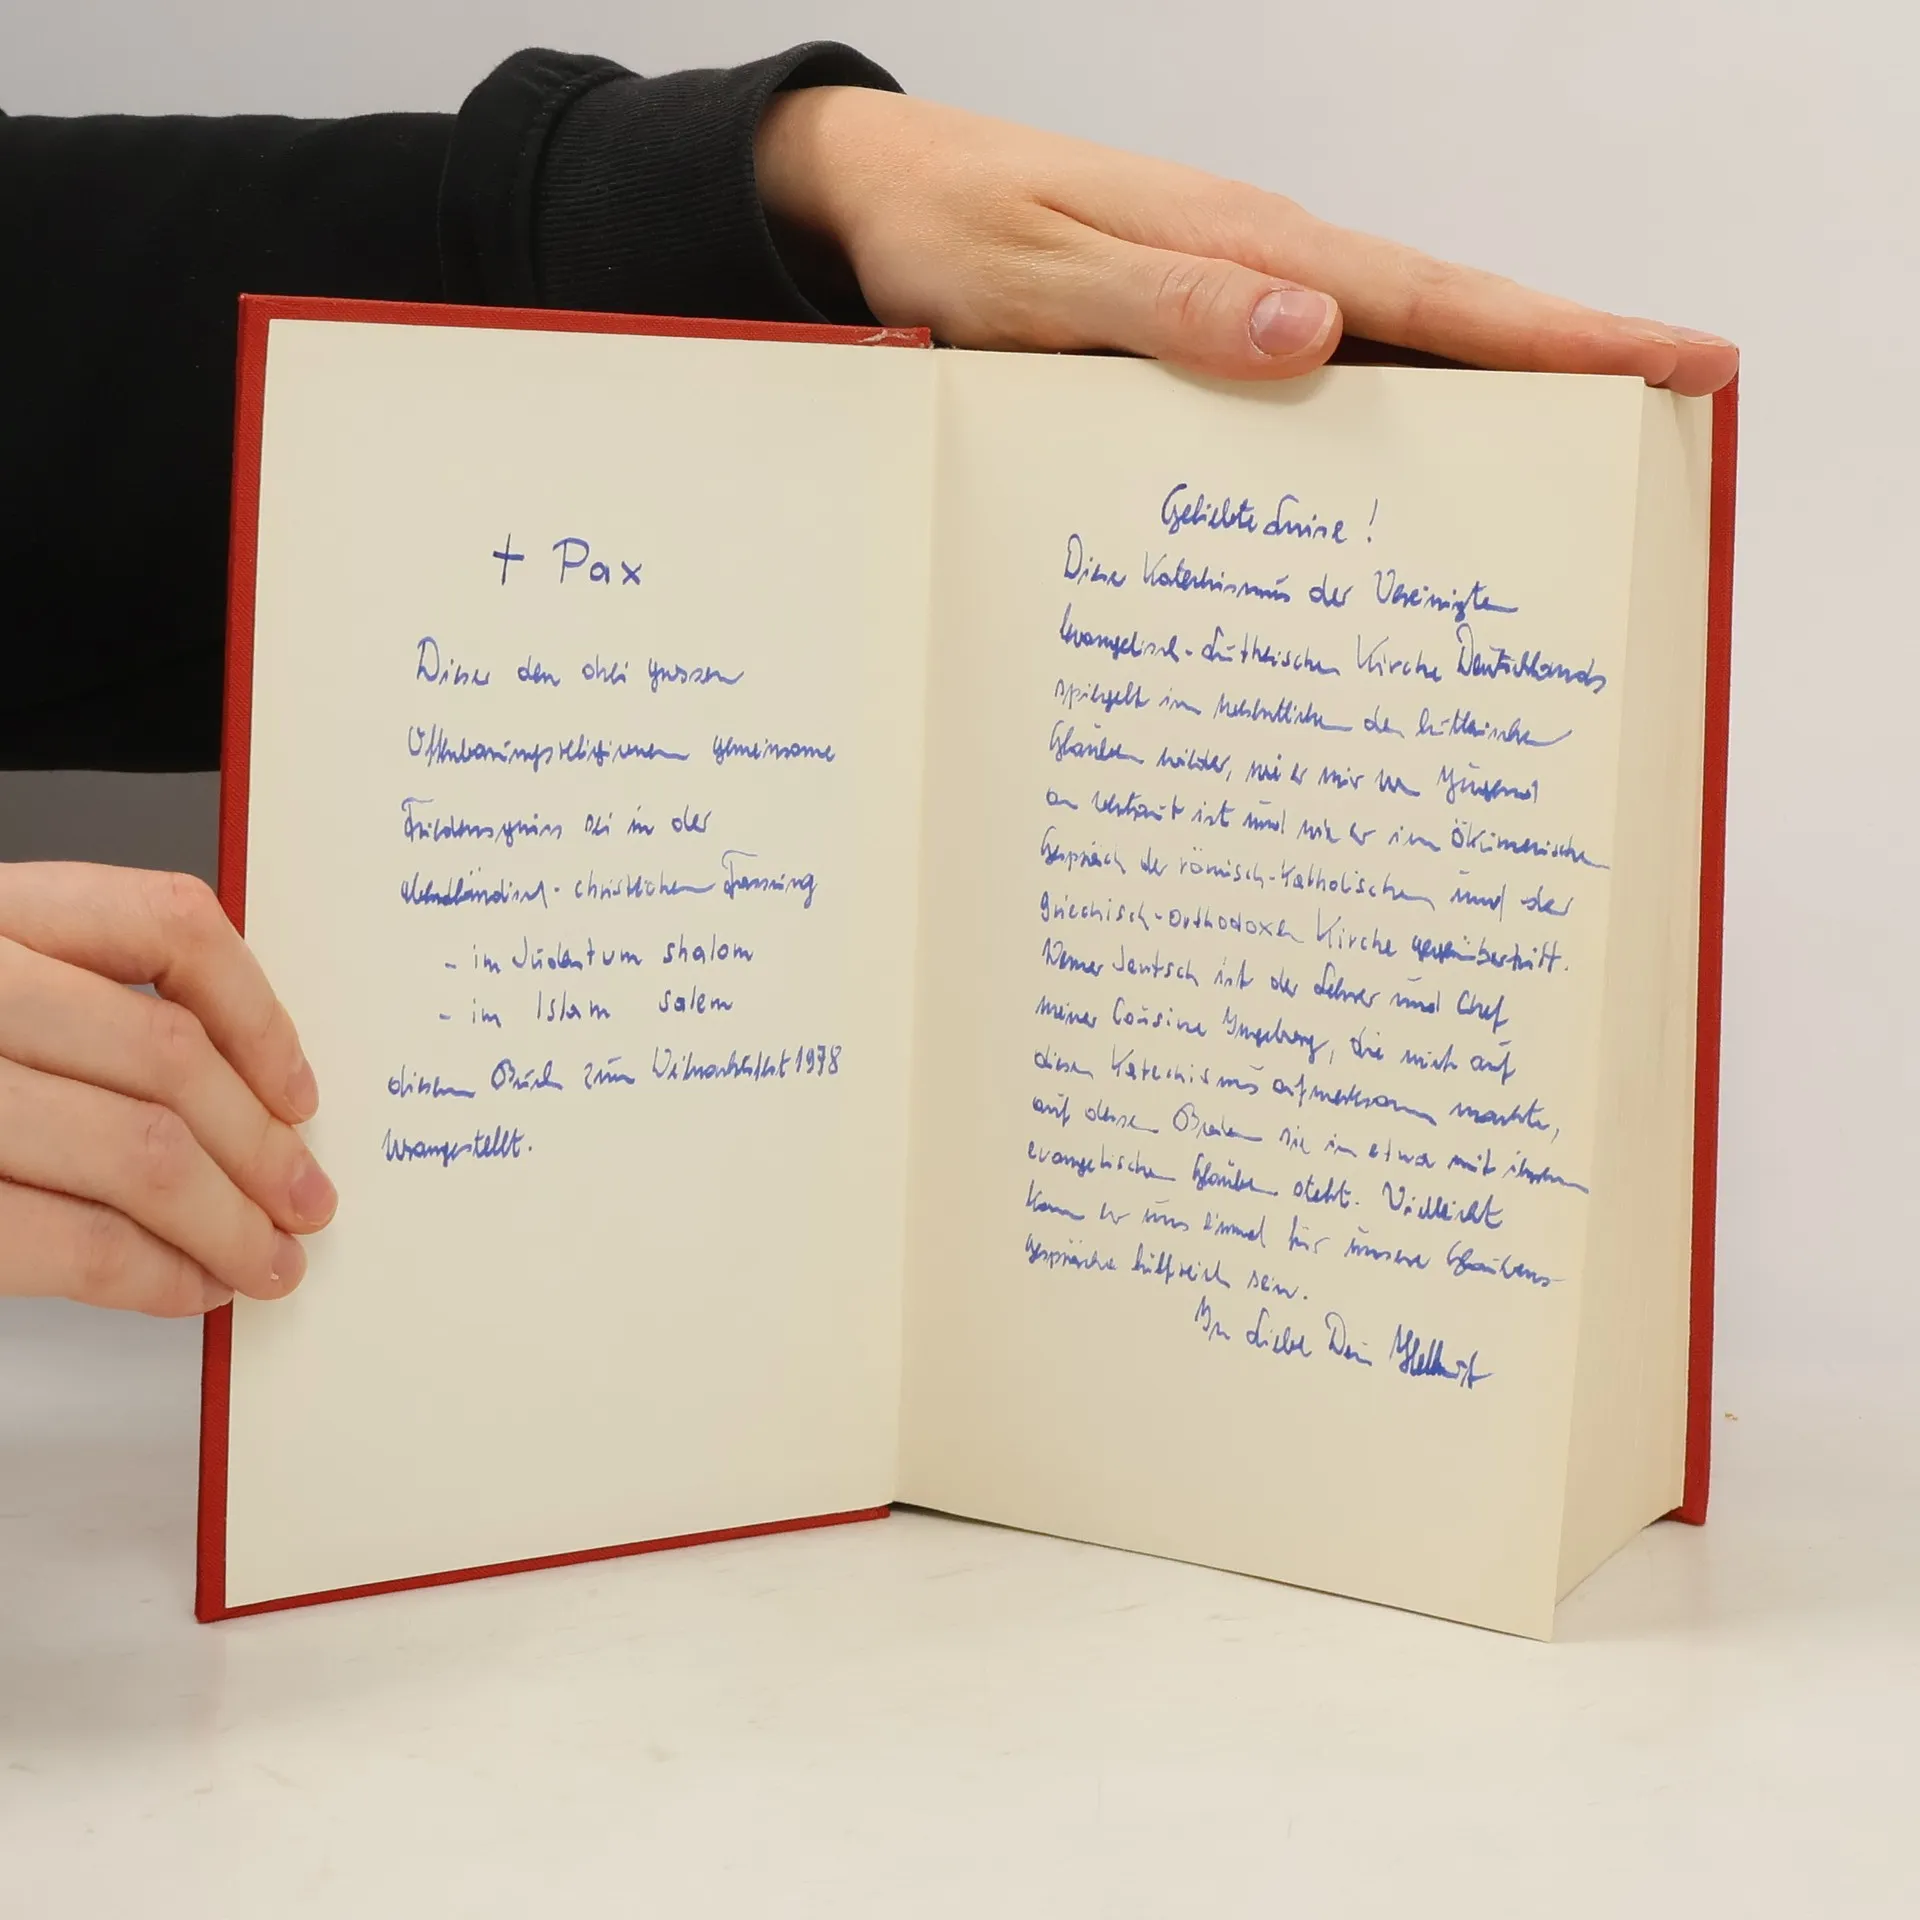 † Pax
Dieser den drei grossen
Offenbarungsreligionen gemeinsame
Friedensgruss sei in der
abendländisch-christlichen Fassung
- im Judentum shalom
- im Islam salem
diesem Buch zum Weihnachtsfest 1978
vorangestellt.
Geliebte Luise!
Dieser Katechismus der Vereinigten
evangelisch-Lutherischen Kirche Deutschlands
spiegelt im wesentlichen den lutherischen
Glauben wider, wie er mir von Jugend
an vertraut ist und wie er im Ökumenischen
Gespräch der römisch-Katholischen und der
griechisch-orthodoxen Kirche gegenübertritt.
Werner Jentsch ist der Lehrer und Chef
meiner Cousine Ingeborg, die mich auf
diesen Katechismus aufmerksam machte,
auf dessen Boden sie in etwa mit ihrem
evangelischen Glauben steht. Vielleicht
kann er uns einmal für unsere Glaubens-
gespräche hilfreich sein.
In Liebe Dein Hellmut